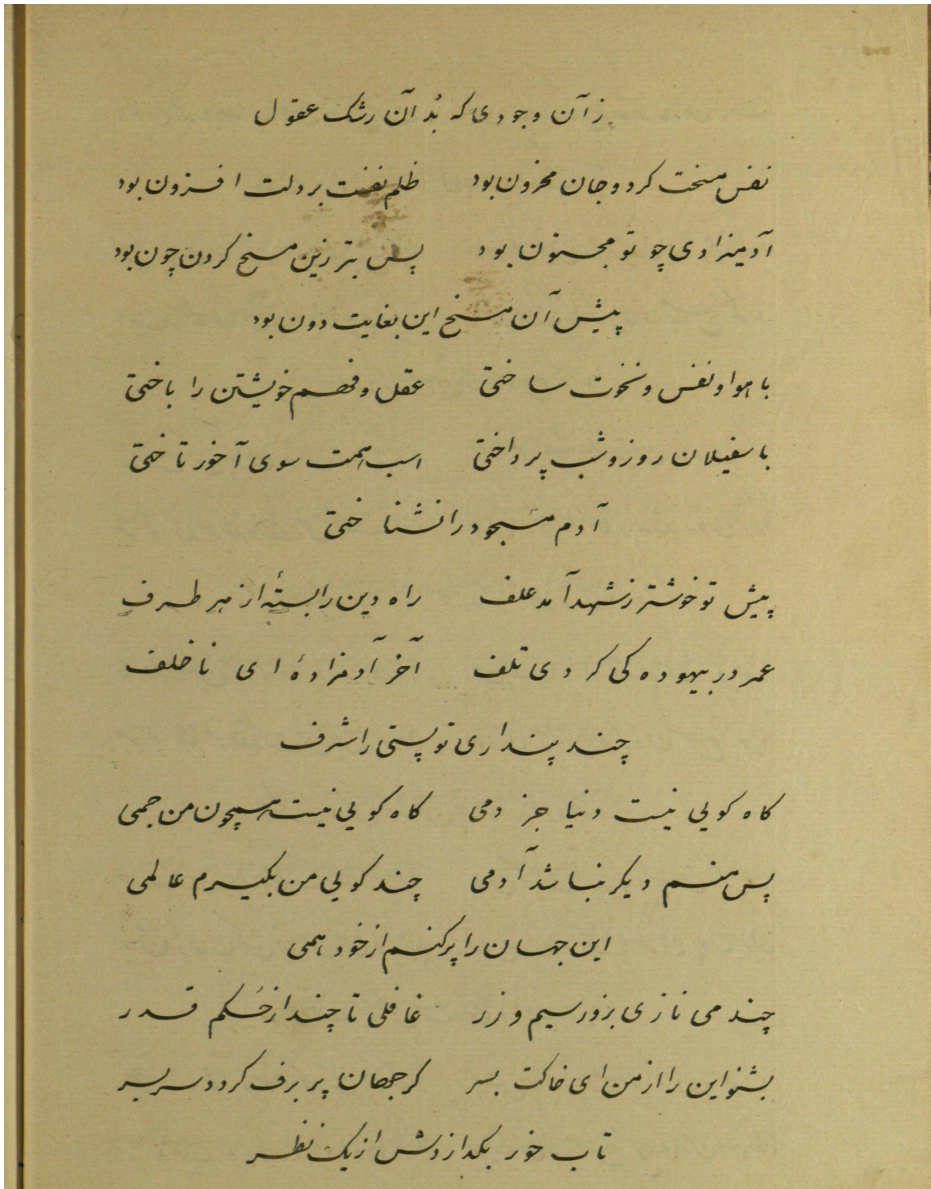 زآن وجودی که بُد آن رشک عقول
نفس مسخت کرد و جان محزون بود ظلم نفست بر دلت افزون بود
آدمیزادی چو تو مجنون بود پس بتر زین مسخ کردن چون بود
پیش آن مسخ این بغایت دون بود
با هوا و نفس و نخوت ساختی عقل و فهم خویشتن را باختی
با سفیلان روز و شب پرداختی اسب همت سوی آخور تاختی
آدم مسجود را نشناختی
پیش تو خوشتر ز شهد آمد علف راه دین را بستهٔ از هر طرف
عمر در بیهوده کی کردی تلف آخر آدمزادهٔ ای ناخلف
چند پنداری تو پستی را شرف
کاه کویی نیست دنیا جز دمی کاه کویی نیست همچون من جمی
پس منم دیکر نباشد آدمی چند کویی من بکیرم عالمی
این جهان را پر کنم از خود همی
چند می نازی بزور سیم و زر غافلی تا چند از حُکم قدر
بشنو این را از من ای خاکت بسر کر جهان پر برف کردد سر بسر
تاب خور بکدازدش از یک نظر